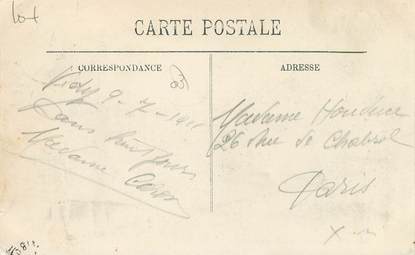 Lot
CARTE POSTALE
CORRESPONDANCE
ADRESSE
9-7-1911
Dans huit jours
Madame
Madame
26 Rue de Chabrol
Paris